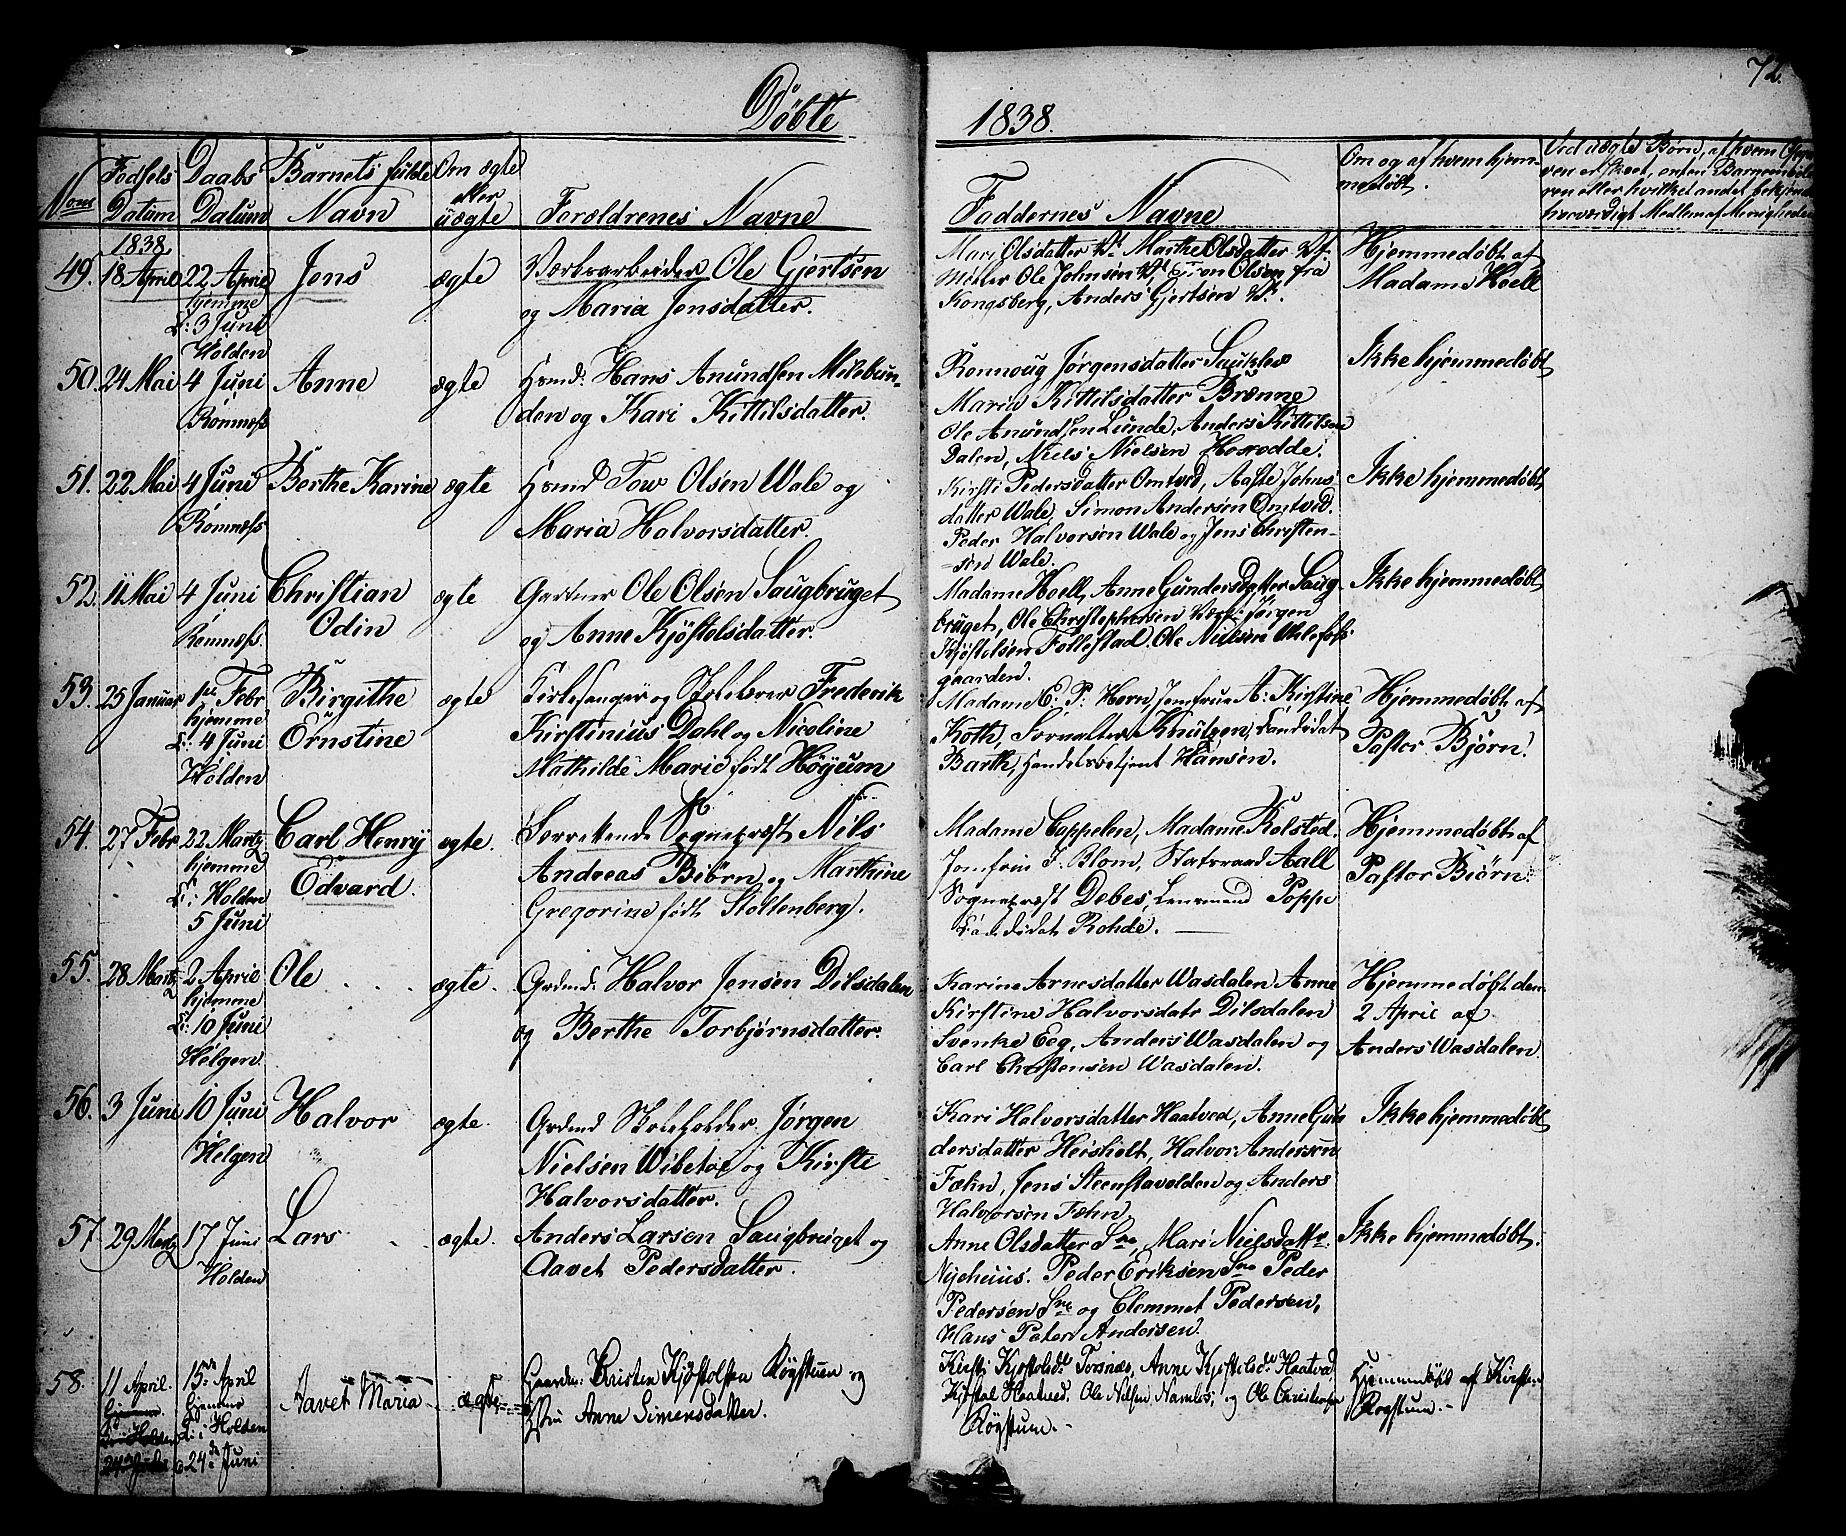 72.
Döbte 1838.
Nom Födsels Datum Daabs Datum Barnets fulde Navn Om ægte eller uægte Forældrenes Navne Faddernes Navne Om og af hvem hjemmedøbt. Ved uægte Børn, af hvem
1838
49. 18 April 22 April hjemme L: 3 Juni Holden Jens ægte Værksarbeider Ole Gjertsen
og Maria Jensdatter.
Mari Olsdatter Marthe Olsdatter
Møller Ole Johnsen Even Olsen fra
Kongsberg, Anders Gjertsen
Hjemmedøbt af
Madame Hoell
50. 24 Mai 4 Juni Romnæss Anne ægte Hmd: Hans Amundsen Milebun-
den og Kari Kittilsdatter.
Ronnoug Jørgensdatter Saukles
Maria Kittilsdatter Brænne
Ole Amundsen Lunde, Anders Kittilsen
Dalen, Niels Nielsen
Ikke hjemmedøbt
51. 22 Mai 4 Juni Romnæss Berthe Karine ægte Hmd Tow Olsen Wale og
Maria Halvorsdatter.
Kirsti Pedersdatter Omtved, Aaste Johns-
datter Wale, Simon Andersen Omtved.
Peder Halvorsen Wale og Jens Christen-
sen Wale.
Ikke hjemmedøbt
52. 11 Mai 4 Juni Romnæss. Christian
Odin ægte Gartner Ole Olsen Saugbruget
og Anne Kjøstolsdatter.
Madame Hoell, Anne Gundersdatter Saug-
bruget, Ole Christophersen Værk: Jørgen
Kjøstelsen Follestad. Ole Nielsen Ulefoss-
gaarden.
Ikke hjemmedøbt
53. 25 Januar 1ste Febr hjemme L: 4 Juni Holden Birgithe
Ernstine ægte Kirkesanger og Skolelærer Frederik
Kirstinius Dahl og Nicoline
Mathilde Marie født Höyum
Madame E. P. Horn, Jomfrue A: Kirstine
Koth, Forvalter Knutzen, Candidat
Barth, Handelsbetjent Hansen.
Hjemmedøbt af
Pastor Bjørn.
54. 27 Febr 22 Martz hjemme L: i Holden 5 Juni Carl Henry
Edvard. ægte. Sognepræst Nils
Andreas Biörn og Marthine
Gregorine født Stoltenberg.
Madame Cappelen, Madame Rolsted.
Jomfru J. Blom, Statsraad Aall
Sognepræst Debes, Lensmand Poppe
Candidat Rohde.
Hjemmedøbt af
Pastor Biörn.
55. 28 Martz 2 April hjemme L: 10 Juni Helgen. Ole ægte. Grdmd. Halvor Jensen Dilsdalen
og Berthe Torbjørnsdatter.
Karine Arnesdatter Wasdalen Anne
Kirstine Halvorsdatr Dilsdalen
Svenke Eeg, Anders Wasdalen og
Carl Christensen Wasdalen.
Hjemmedøbt den
2 April af
Anders Wasdalen.
56. 3 Juni 10 Juni Helgen Halvor ægte. Grdmd Skoleholder Jørgen
Nielsen Wibetoe og Kirsti
Halvorsdatter.
Kari Halvorsdatter Haatved, Anne Gun-
dersdatter Heisholt, Halvor Andersen
Fæhn, Jens Steenstavolden og Anders
Halvorsen Fæhn.
Ikke hjemmedøbt
57. 29 Martz 17 Juni Holden Lars ægte. Anders Larsen Saugbruget og
Aavet Pedersdatter.
Anne Olsdatter Sne, Mari Nielsdattr
Nyehuus. Peder Eriksen Sne Peder
Pedersen Sne og Clemmet Pedersen,
Hans Peter Andersen.
Ikke hjemmedøbt.
58. 11 April. 15de April hjemme L: i Holden 24de Juni Aavet Maria ægte Gaardm: Christen Kjøstolsen Röystuen og
Hustru Anne Simensdatter.
Kirsti Kjøstolsd: Torsnæs, Anne Kjøstolsd: Haatved
Kjøstol Haatved. Ole Nilsen Navles; og Ole Christensen
Röystuen.
Hjemmedøbt af Kirsten
Röystuen.